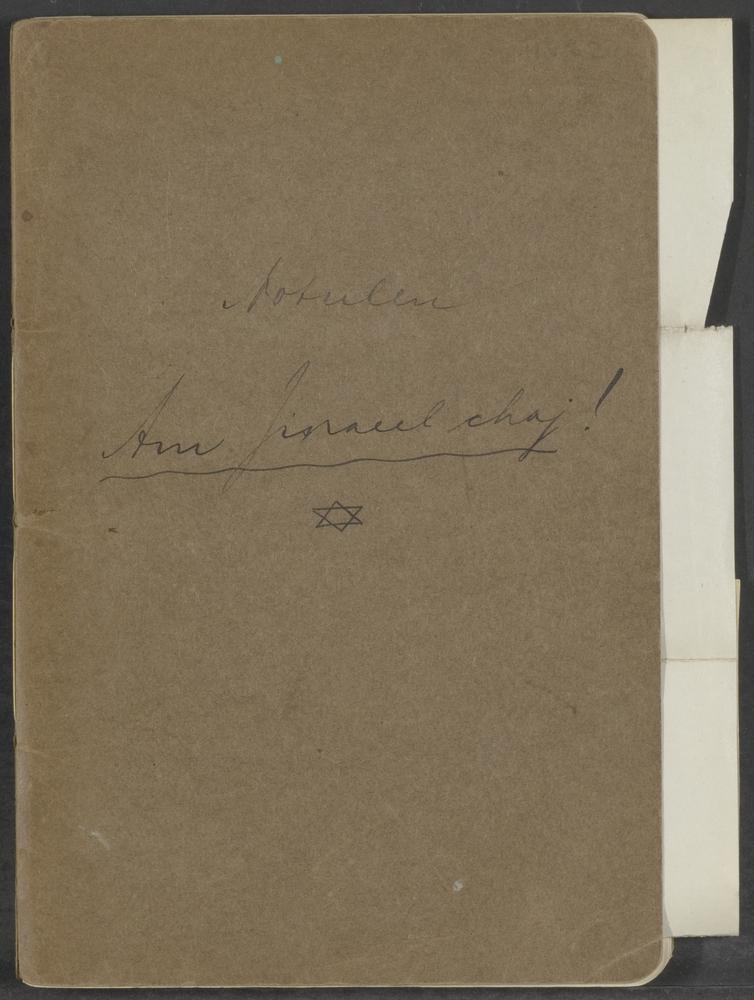 Notulen
Am Jisraeel chaj!